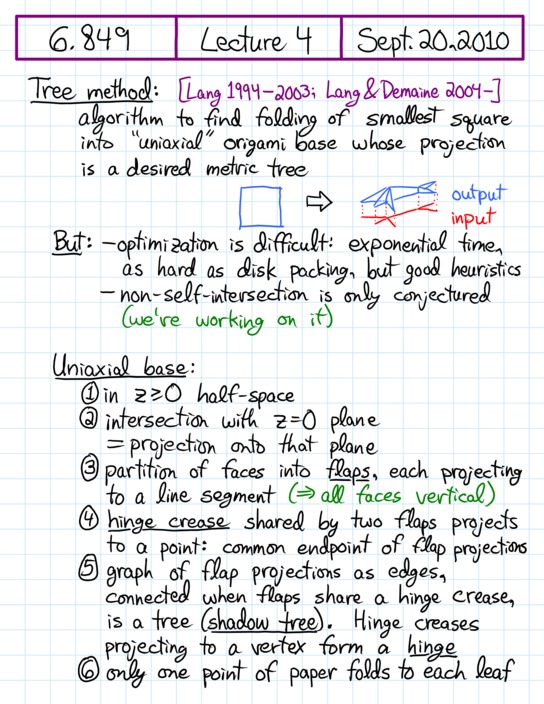 6.849 Lecture 4 Sept. 20, 2010
Tree method: [Lang 1994-2003; Lang & Demaine 2004-]
algorithm to find folding of smallest square
into "uniaxial" origami base whose projection
is a desired metric tree
⇨ output
input
But: - optimization is difficult: exponential time,
as hard as disk packing, but good heuristics
- non-self-intersection is only conjectured
(we're working on it)
Uniaxial base:
① in z≥0 half-space
② intersection with z=0 plane
= projection onto that plane
③ partition of faces into flaps, each projecting
to a line segment (⇒ all faces vertical)
④ hinge crease shared by two flaps projects
to a point: common endpoint of flap projections
⑤ graph of flap projections as edges,
connected when flaps share a hinge crease,
is a tree (shadow tree). Hinge creases
projecting to a vertex form a hinge
⑥ only one point of paper folds to each leaf